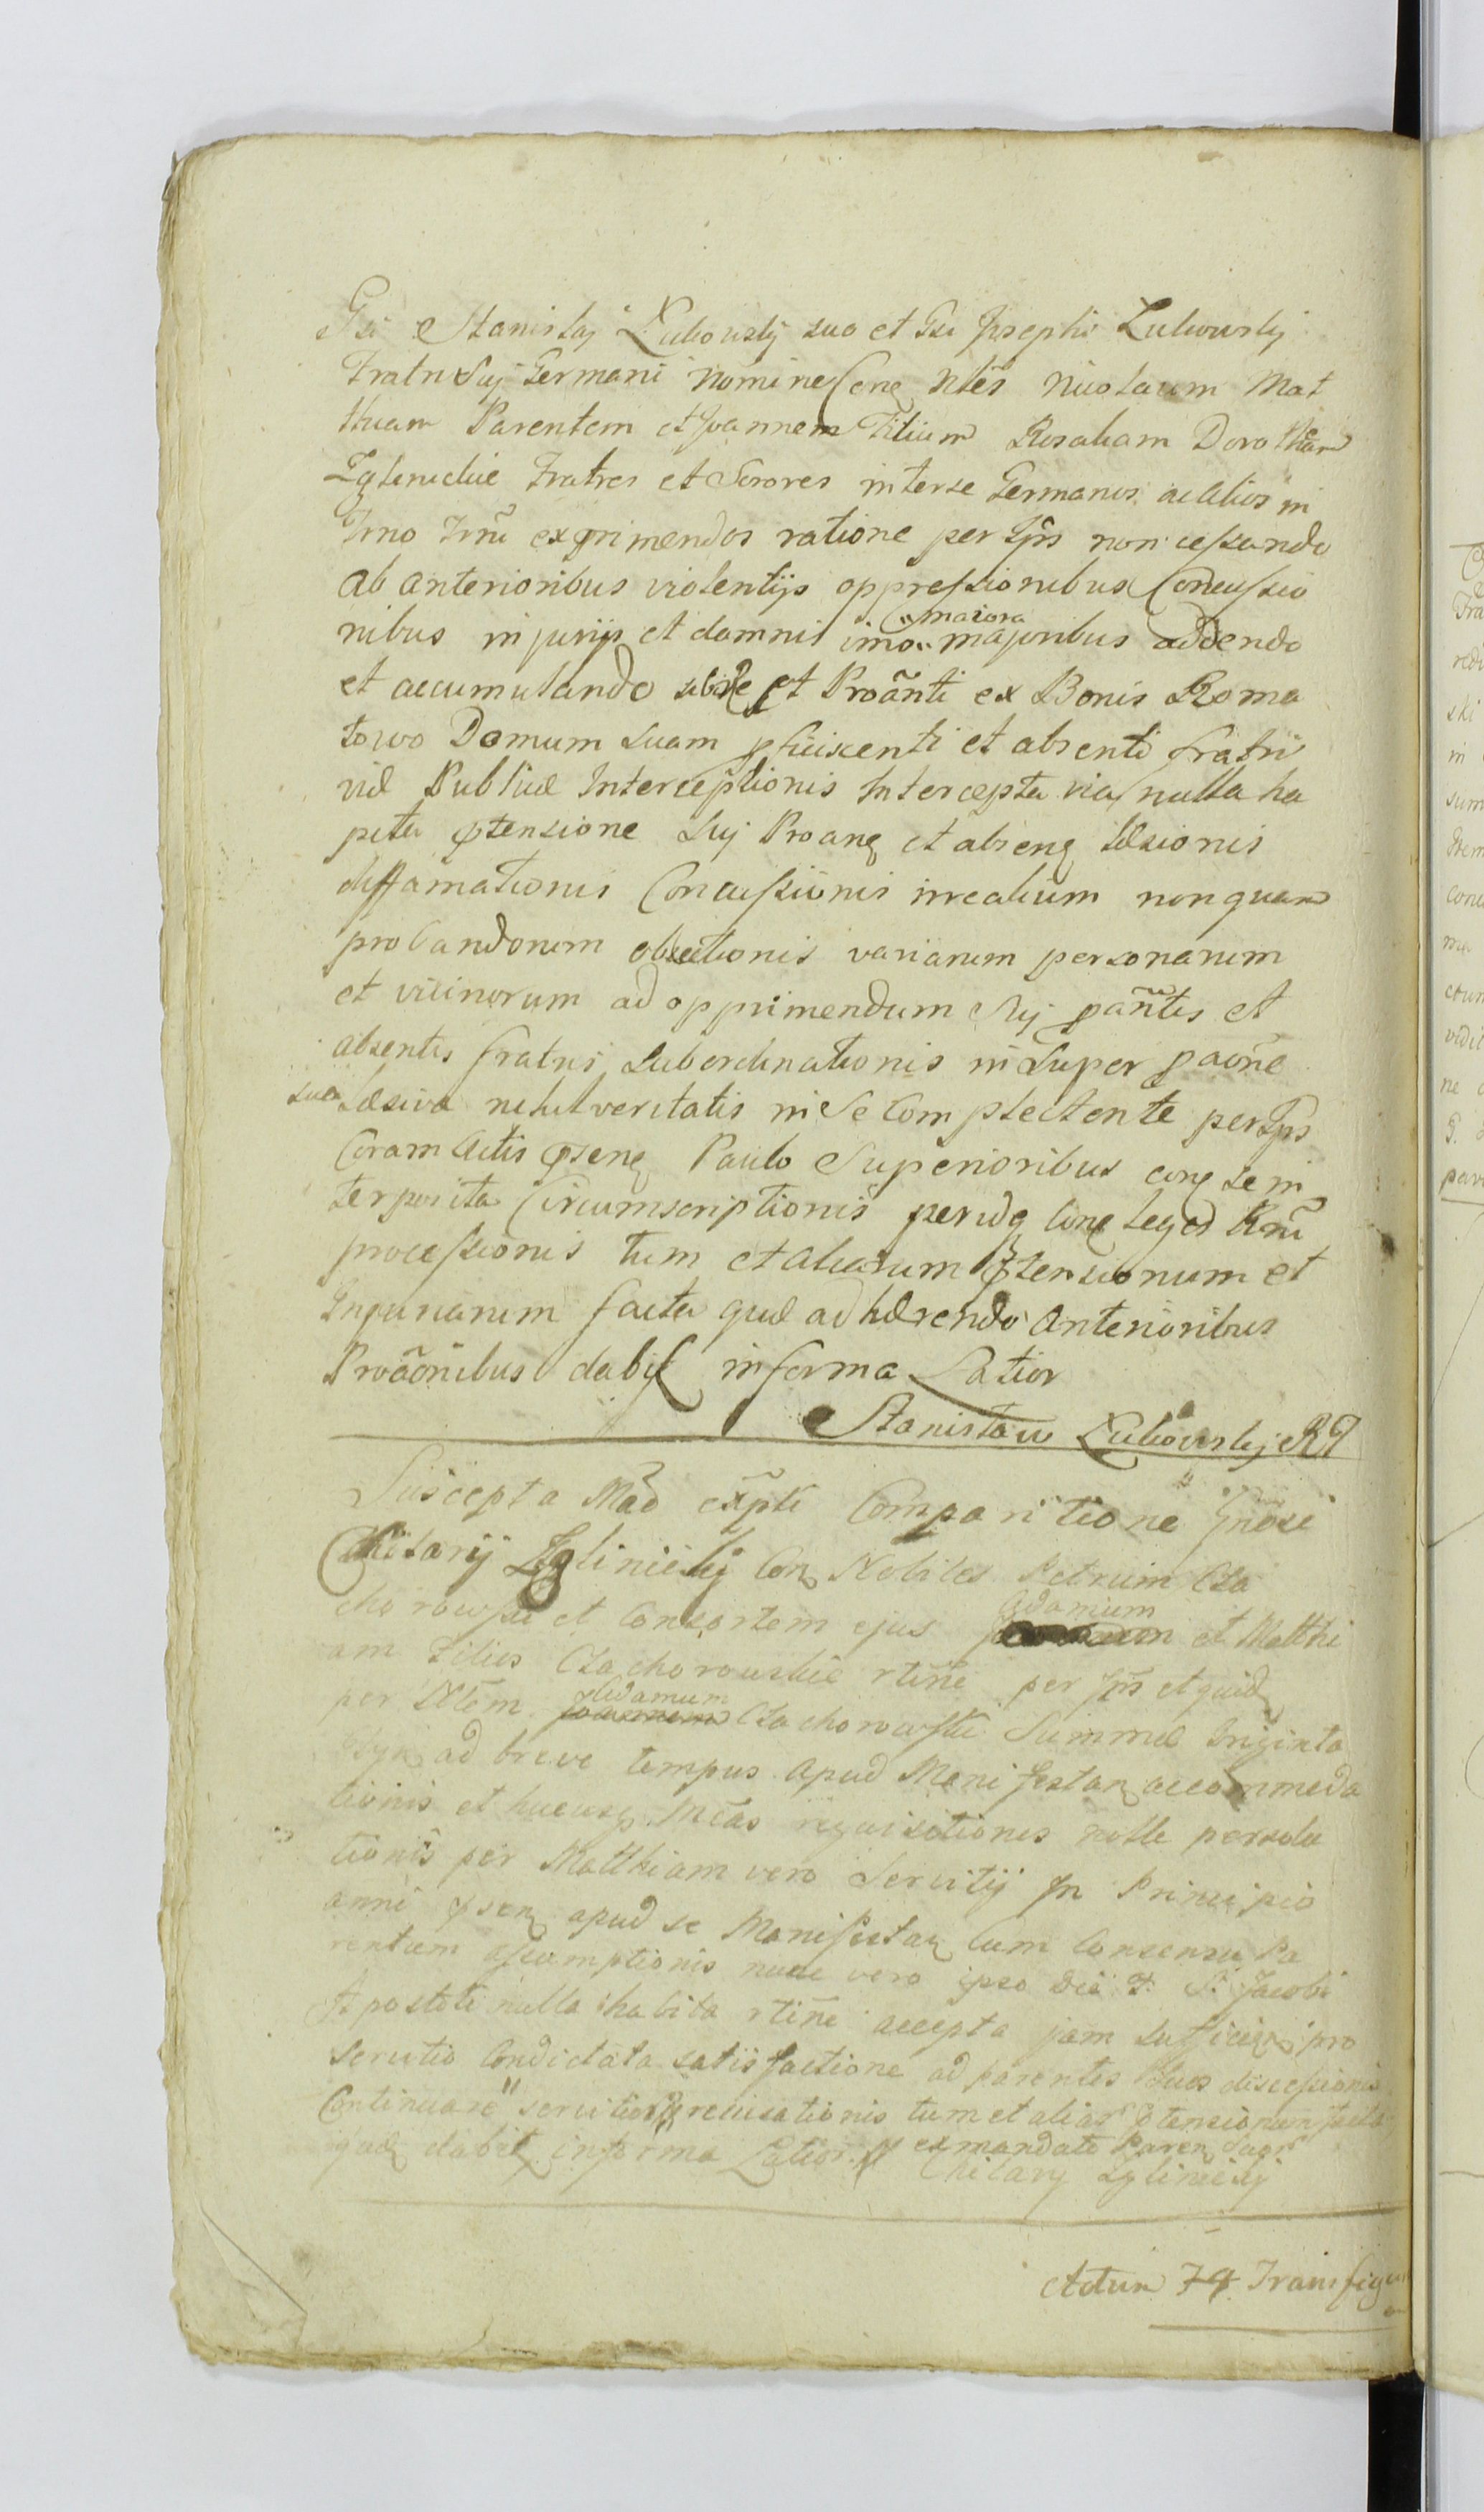 Gsi Stanislaj Łubowskij suo et Gsi Josephi Łubowskij
Fratris Suj Germani nomine Conq Nbles Nicolaum Mat
thiam Parentem et Joannem Filium Rosaliam Dorotheam
Zglinickie Fratres et Sorores inter se Germanos ac alios in
Trno Trni exprimendos ratione per Ipsos non cessando
ab anterioribus violentijs oppressionibus Concussio
nibus injurijs et damnis imo maiora majoribus addendo
et accumulando sibi et Proanti ex Bonis Roma
towo Domum suam pficiscenti et absenti fratri
viæ Publicæ Interceptionis Intercepta via nulla ha
bita ptensione Suj Proanq et absenq læsionis
diffamationis Concussionis irrealium nonquam
probandorum objectionis variarum personarum
et vicinorum ad opprimendum Suj pantis et
absentis fratris Subordinationis insuper paone
sua læsiva nihil veritatis in se Complectente per Ipsos
Coram Actis psenq Paulo Superioribus conq se in
terposita Circumscriptionis peridq Conq leges Rni
processionis tum et aliarum ptensionum et
Injuriarum facta quæ adhærendo anterioribus
Proaonibus dabit in forma Latior
Stanisław Łubowskij RP
Suscepta Mad expti Comparitione Gnosi
Chilarij Zglinickij Conq Nobiles Petrum Cza
chorowski et Consortem ejus Adamum et Matthi
am Filios Czachorowskie rtine per Ipsos et quid
per Nblem Joannem Adamum Czachorowski Summæ triginta
ad breve tempus apud Manifestan accommoda
tionis et hucusq requisitionis nolle persolu
tionis per Matthiam vero Servitij In Principio
anni psenq apud se Manifestan Cum Consensu Pa
rentum assumptionis nunc vero ipso die F. S. Jacobi
Apostoli nulla habita rtine accepta jam sufficien pro
servitio Condictata satisfactione ad parentes Suos discessionis
Continuare servitior recusationis tum et aliar ptensionum facta
quæ dabit in forma Latiori ex mandato Paren Suor
Chilary Zglinickij
Actum F4 Transfigur